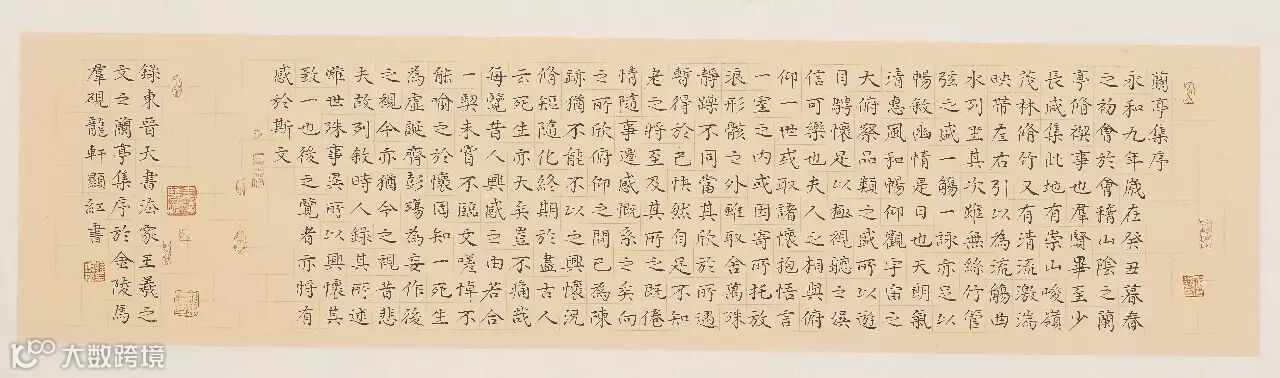 蘭亭集序
永和九年歲在癸丑暮春
之初會於會稽山陰之蘭
亭脩禊事也羣賢畢至少
長咸集此地有崇山峻嶺
茂林脩竹又有清流激湍
映帶左右引以為流觴曲
水列坐其次雖無絲竹管
弦之盛一觴一詠亦足以
暢敘幽情是日也天朗氣
清惠風和暢仰觀宇宙之
大俯察品類之盛所以遊
目騁懷足以極視聽之娛
信可樂也夫人之相與俯
仰一世或取諸懷抱悟言
一室之內或因寄所托放
浪形骸之外雖取舍萬殊
靜躁不同當其欣於所遇
暫得於己快然自足不知
老之將至及其所之既倦
情隨事遷感慨系之矣向
之所欣俯仰之間已為陳
跡猶不能不以之興懷況
脩短隨化終期於盡古人
云死生亦大矣豈不痛哉
每覽昔人興感之由若合
一契未嘗不臨文嗟悼不
能喻之於懷固知一死生
為虛誕齊彭殤為妄作後
之視今亦猶今之視昔悲
夫故列敘時人錄其所述
雖世殊事異所以興懷其
致一也後之覽者亦將有
感於斯文
錄東晉大書法家王羲之
文之蘭亭集序於金陵馬
羣硯龍軒顯紅書
大数跨境